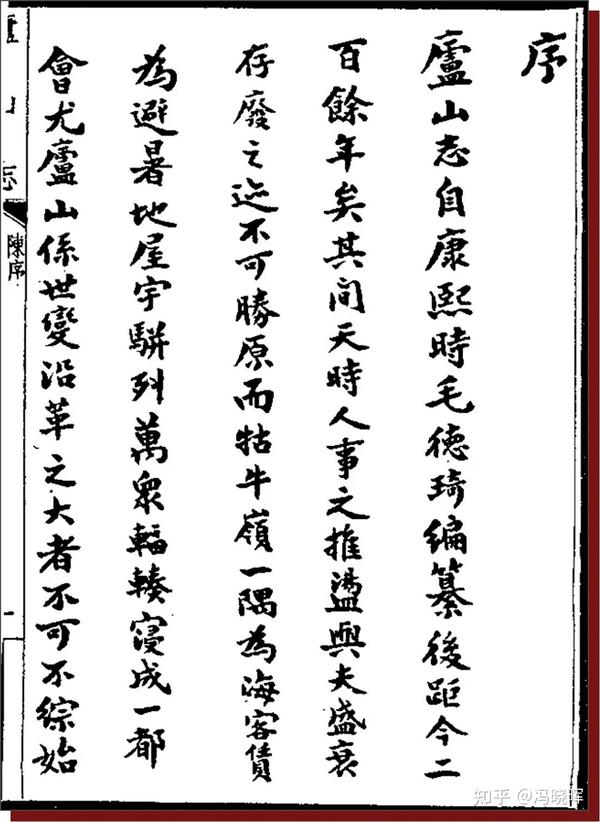 序
廬山志自康熙時毛德琦編纂後距今二
百餘年矣其間天時人事之推盪與夫盛衰
存廢之迹不可勝原而牯牛嶺一隅為海客賃
為避暑地屋宇駢列萬衆輻輳寖成一都
會尤廬山係世變沿革之大者不可不綜始
山志
陳序
一
知乎 @冯晓晖